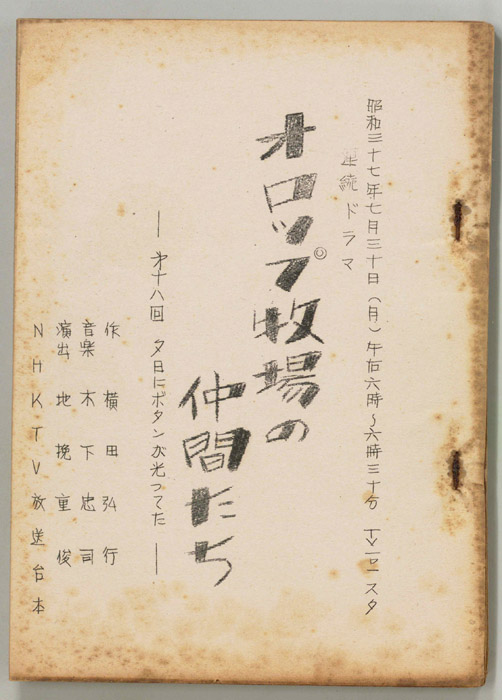 昭和三十七年七月三十日(月)午后六時～六時三十分 TV-101スタ
連続ドラマ
オロップ牧場の
仲間たち
― 第十八回 夕日にボタンが光ってた ―
作 横田弘行
音楽 木下忠司
演出 地挽重俊
NHKTV放送台本